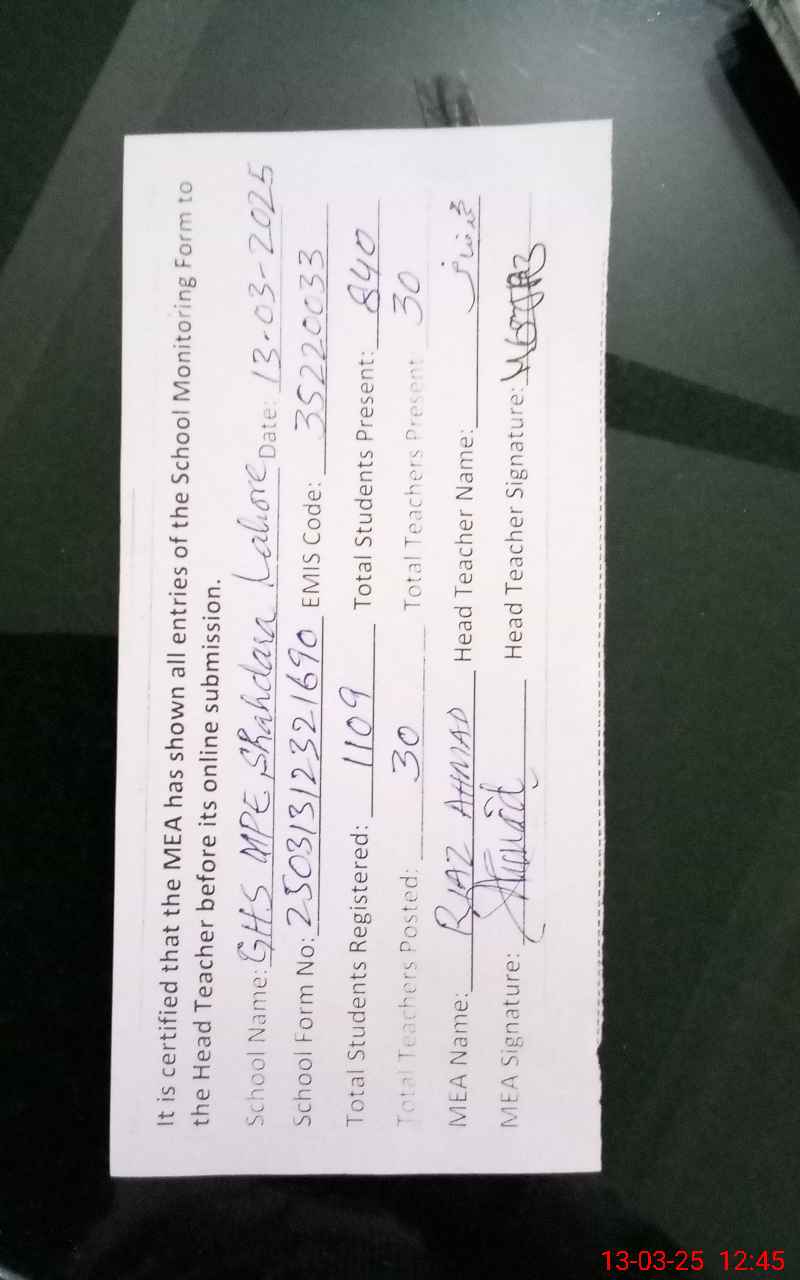 It is certified that the MEA has shown all entries of the School Monitoring Form to
the Head Teacher before its online submission.
School Name: GHS MPE, Shahdara Lahore Date: 13-03-2025
School Form No: 25031312321690 EMIS Code: 35220033
Total Students Registered: 1109 Total Students Present: 840
Total Teachers Posted: 30 Total Teachers Present 30
MEA Name: RIAZ AHMAD Head Teacher Name:
MEA Signature: Head Teacher Signature:
13-03-25 12:45